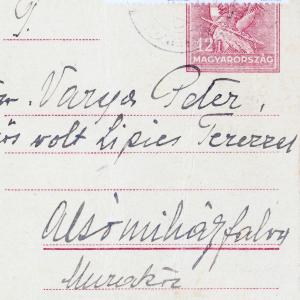 P.
12f
MAGYARORSZÁG
Varga Peter,
volt Lipics Terezzel
Alsómihályfalva
Muraköz